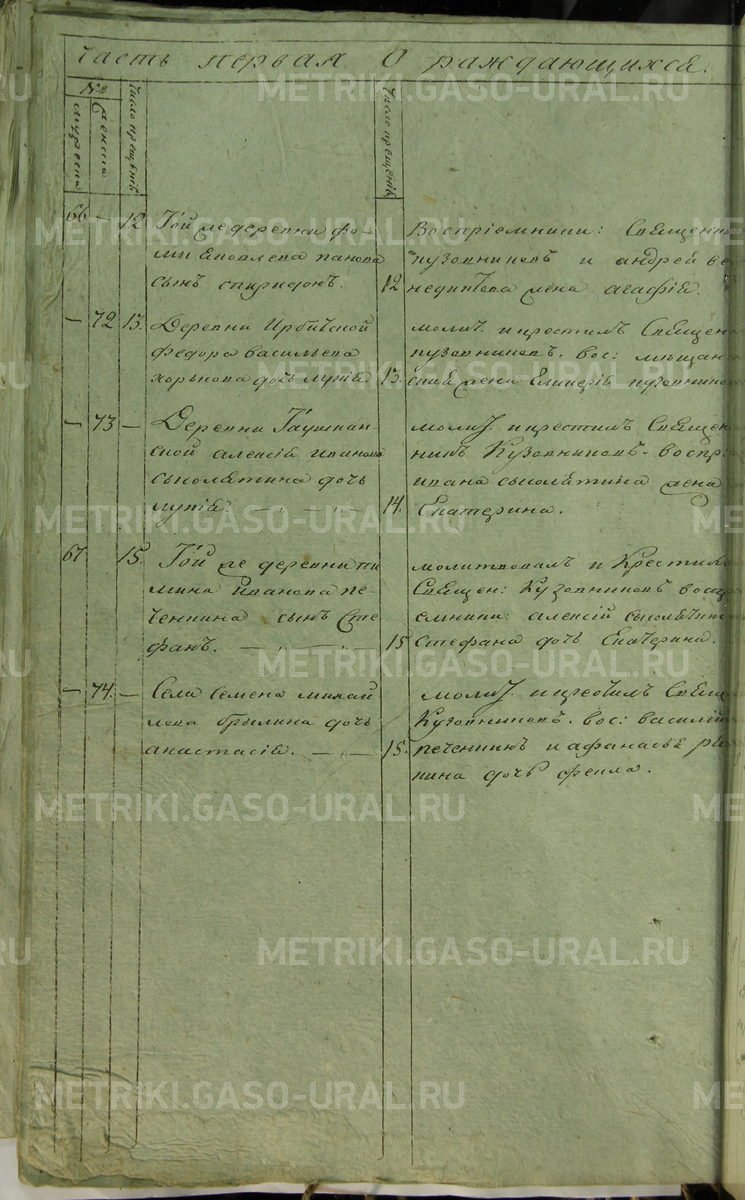 Часть первая О раждающихся.
№
мужеска
женска
Число рожденія
Число крещенія
66 — 12 Той же деревни Фо-
мы Яковлева Панова
сынъ Спиридонъ. 12
Воспріемники: Священни
Кузовниковъ и Андрей Ве
недиктова жена Агафія.
— 72 13. Деревни Ирбитской
Федора Васильева
Харькова дочь Лукія 13.
молит. и крестилъ Священ
Кузовниковъ. вос: мещан
ская жена Кузовнико
— 73 — Деревни
ской Алексія Иванова
Сысолятина дочь
Лукія. — — — 14.
молит. и крестилъ Священ
никъ Кузовниковъ. воспр:
Ивана Сысолятина жена
Екатерина.
67 15. Той же деревни
Иванова Пе-
ченкина сынъ Сте
фанъ. — — — 15
молитвовалъ и Крестилъ
Священ: Кузовниковъ воспр
емники: Алексій Сысолятинъ
Стефана дочь Екатерина.
— 74. — Села Семена Михай
лова Брылина дочь
Анастасія. — — 15.
молит. и крестилъ Свящ
Кузовниковъ. вос: Василій
Печенкинъ и Афанасья
дочь Фекла.
METRIKI.GASO-URAL.RU